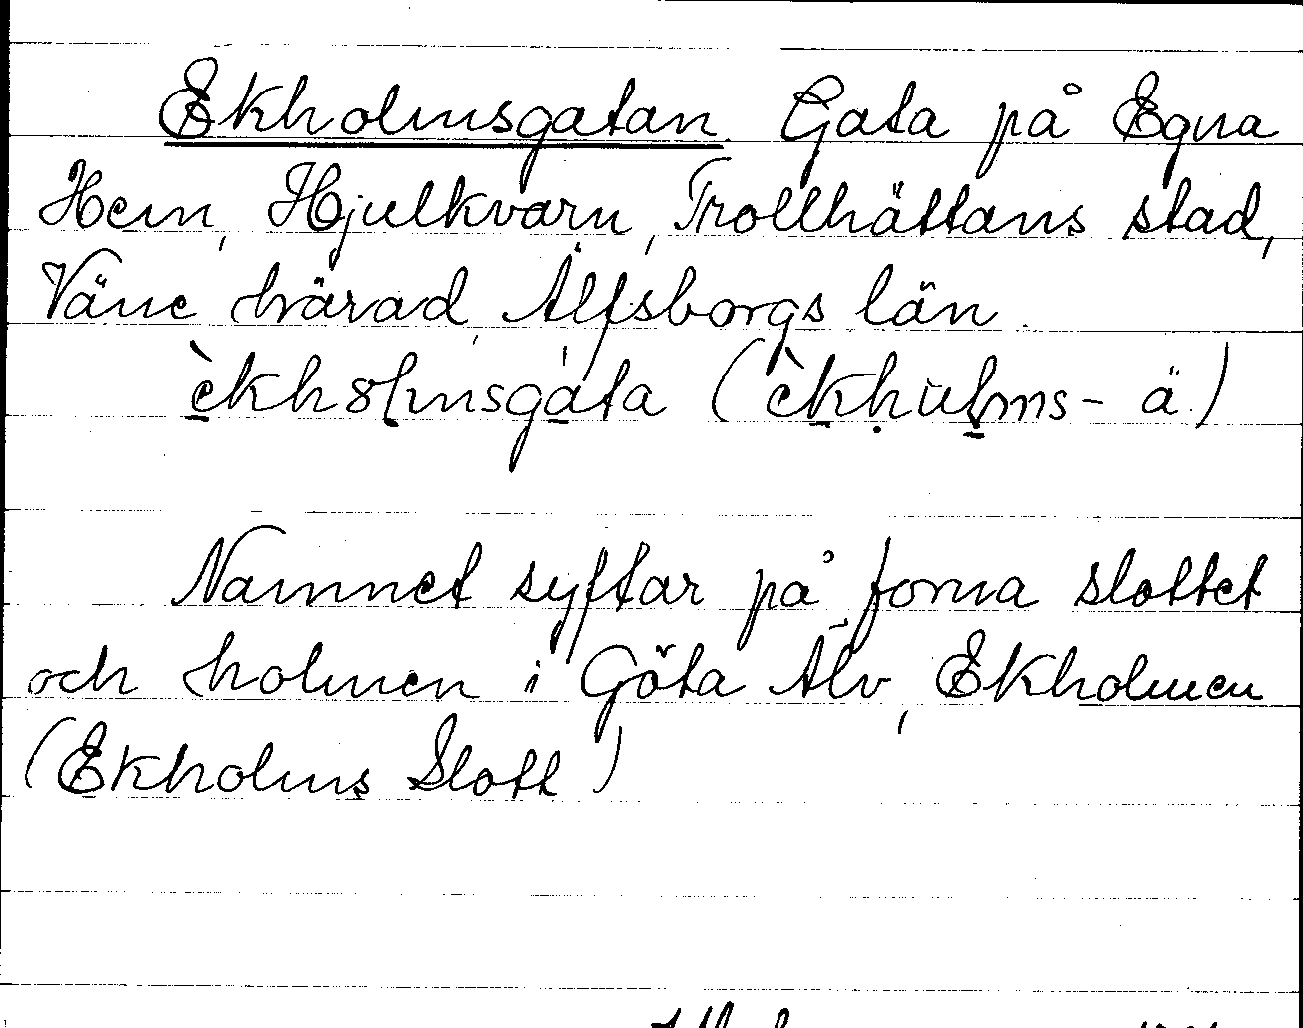 Ekholmsgatan Gata på Egna
Hem, Hjulkvarn, Trollhättans stad,
Väne härad, Älfsborgs län.
èkhɷlmsgáta (èkhulms- ä)
Namnet syftar på forna slottet
och holmen i Göta Älv, Ekholmen
(Ekholms Slott)